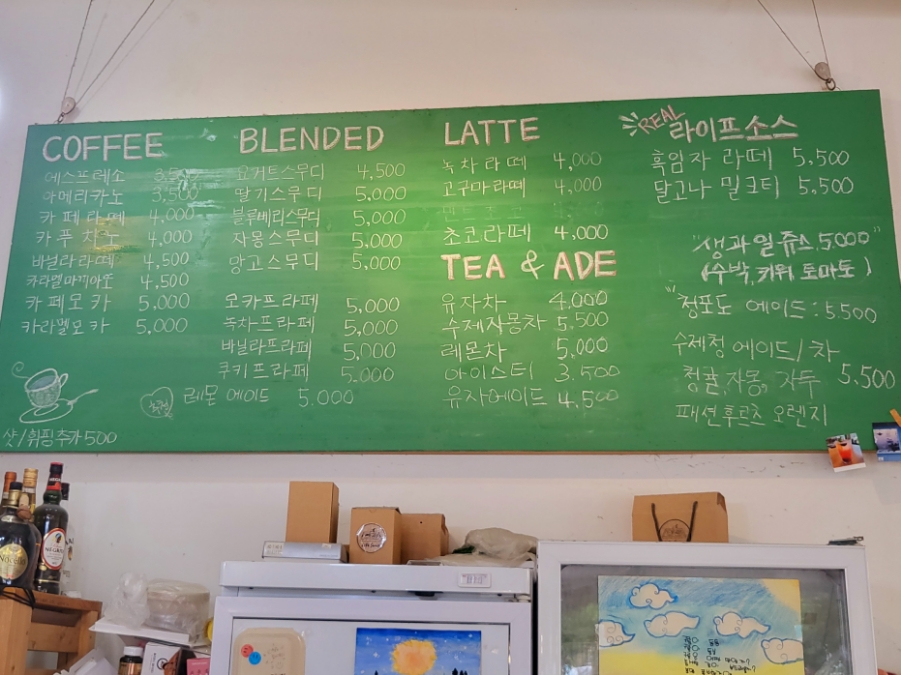 COFFEE
에스프레소 3,500
아메리카노 3,500
카페라떼 4,000
카푸치노 4,000
바닐라라떼 4,500
카라멜마끼아또 4,500
카페모카 5,000
카라멜모카 5,000
샷/휘핑추가 500
BLENDED
요거트스무디 4,500
딸기스무디 5,000
블루베리스무디 5,000
자몽스무디 5,000
망고스무디 5,000
모카프라페 5,000
녹차프라페 5,000
바닐라프라페 5,000
쿠키프라페 5,000
레몬 에이드 5.000
LATTE
녹차라떼 4,000
고구마라떼 4,000
초코라떼 4,000
TEA & ADE
유자차 4.000
수제자몽차 5,500
레몬차 5,000
아이스티 3.500
유자에이드 4,500
REAL 라이프소스
흑임자 라떼 5,500
달고나 밀크티 5.500
"생과일쥬스 5.000"
(수박,키위,토마토)
청포도 에이드:5.500
수제청 에이드/차
청귤,자몽, 자두 5,500
패션후르츠 오렌지